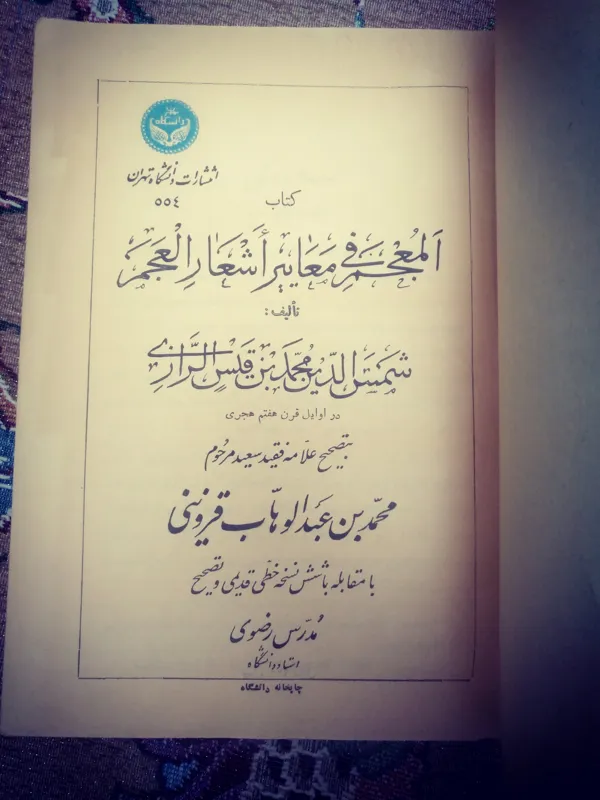 دانشگاه
انتشارات دانشگاه تهران
٥٥٤
کتاب
اَلمُعْجَم فِی مَعَاییرِ أَشْعَارِ الْعَجَمَ
تألیف:
شَمسُ الدّین مُحمّد بن قَیسِ الرَّازِی
در اوایل قرن هفتم هجری
بتصحیح علّامه فقید سعید مرحُوم
محمّد بن عَبدالوهّاب قزوینی
با مقابله با شش نسخه خطّی قدیمی و تصحیح
مُدرّس رضوی
استاد دانشگاه
چاپخانه دانشگاه